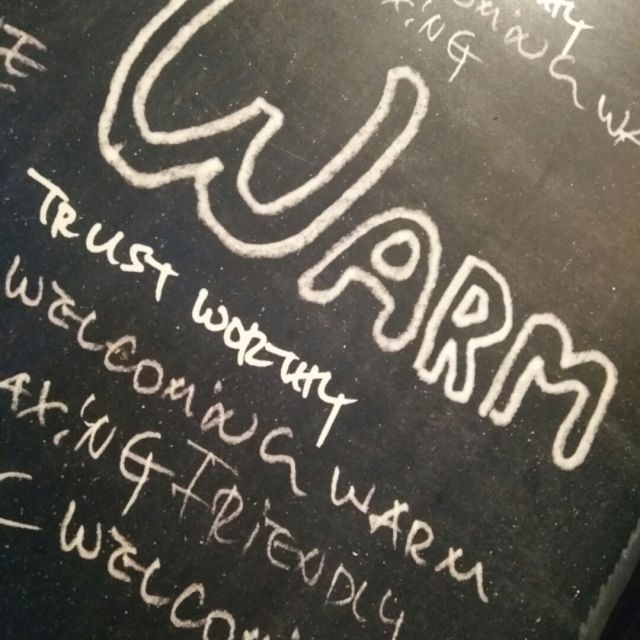 WARM
TRUST WORTHY
WELCOMING WARM
AXING FRIENDLY
WELCOMI